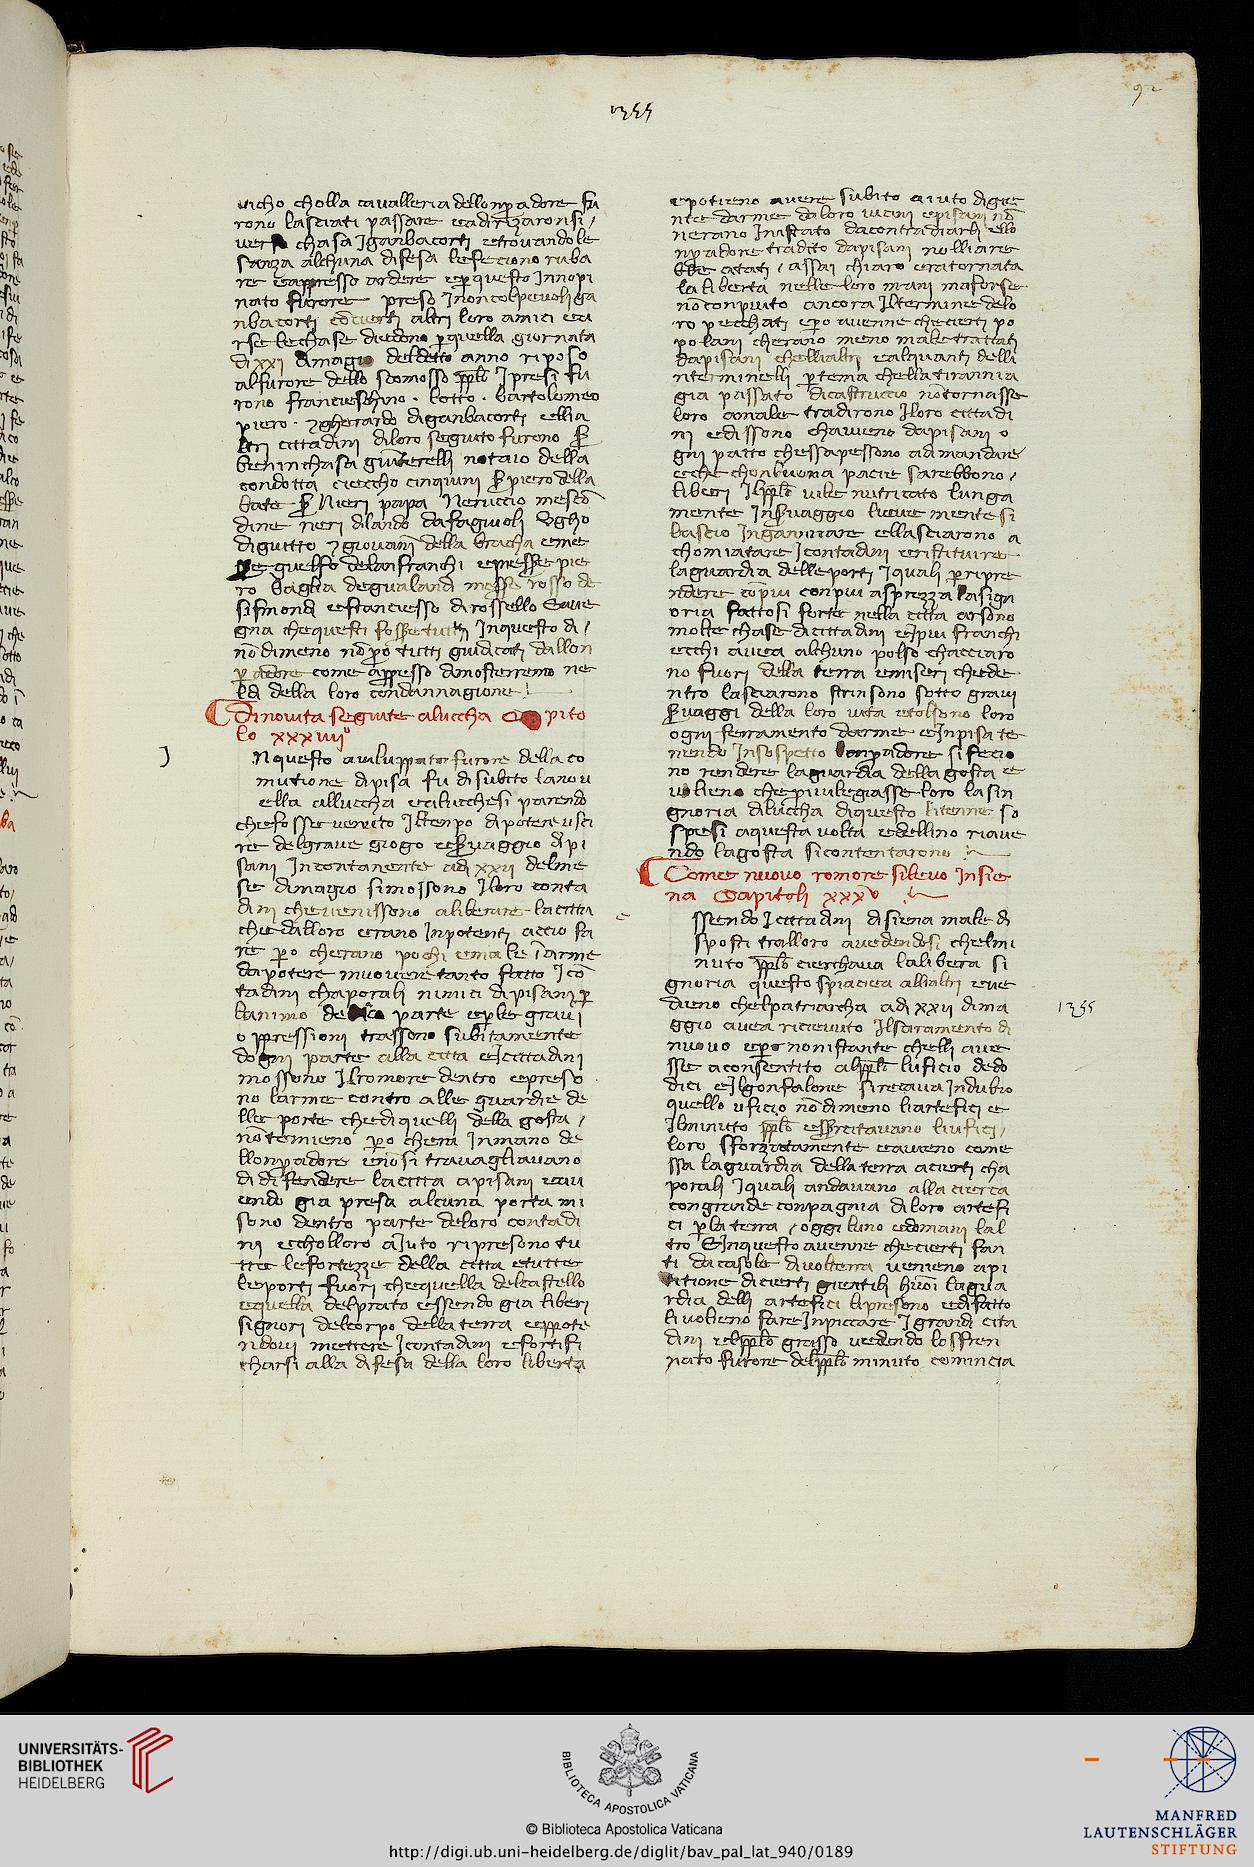 1355
92
vicho cholla cavalleria dellonpadore fu
rono lasciati passare e adirizaronsi /
verso chasa i ganbacorti e trovandole
sanza alchuna difesa le feciono ruba
re e appresso ardere e per questo innopi
nato furore preso i noncolpevoli ga
nbacorti e cierti altri loro amici e ar
se le chase diedono per quella giornata
di xxi di magio del detto anno riposo
al furore dello scomosso pplo i presi fu
rono francieschino · lotto · bartolomeo
piero · e gherardo di ganbacorti e lli a
ltri cittadini di loro seguito furono s
benincasa giunterelli notaio della
condotta ciecho cinquini s piero della
bate s nieri papa neruccio mescon
dine neri di lando da fagiuoli ugho
di guitto e giovani della bracha e me
s guelfo de lanfranchi e messe pie
ro baglia de gualandi messe rosso de
sismondi e franciesco di rossello e ave
gna che questi fosse tutti in questo di /
non dimeno non pero tutti giudicati dallon
peradore come appresso dimosterremo ne
ldi della loro condannagione
Di novita seguite a luccha Capito
lo xxxiiiiº
J
N questo aviluppato furore della co
mutione di pisa fu di subito la nov
ella a lluccha e a lucchesi parendo
che fosse venuto il tenpo di potere usci
re del grave giogo e servaggio di pi
sani incontanente a di xxii del me
se di magio si mossono i loro conta
dini che venissono a liberare la citta
che dalloro erano inpotenti a ccio fa
re pero cherano pochi e male in arme
da potere muovere tanto fatto i con
tadini chaporali nimici di pisani per
lanimo de parte e per le gravi
oppressioni trassono subitamente
dogni parte alla citta e i cittadini
mossono il romore dentro e preso
no larme contro alle guardie de
lle porte che di quelli della gosta /
non temieno pero chera in mano de
llonperadore e non si travagliavano
di difendere la citta a pisani e av
endo gia presa alcuna porta mi
sono dentro parte de loro contadi
ni e cholloro aiuto ripresono tu
tte le fortezze della citta e tutte
le porti fuori che quella del castello
e quella del prato e essendo gia liberi
signori del corpo della terra e ppote
ndovi mettere i contadini e fortifi
charsi alla difesa della loro liberta
e potieno avere subito aiuto di gie
nte darme da loro vicini e pisani non
nerano in istato da contradiarli e llo
npadore tradito da pisani no lli are
bbe atati / assai chiaro era tornata
la liberta nelle loro mani ma forse
non conpiuto ancora il termine de lo
ro pecchati e pero avenne che cierti po
polani cherano meno male trattati
da pisani che lli altri e alquanti delli
nterminelli per tema che lla tirannia
gia passata di castruccio non tornasse
loro a male tradirono i loro cittadi
ni e dissono chavieno da pisani o
gni patto che ssapessono adimandare
e che chon buona pacie sarebbono /
liberi il pplo vile nutricato lunga
mente in servaggio lieve mente si
lascio ingannare e llasciarono a
chomiatare i contadini e ristituire
la guardia delle porti i quali per ripre
ndere con piu conpiu asprezza la sign
oria fattosi forte nella citta arsono
molte chase di cittadini e i piu franchi
e chi avea alchuno polso chacciaro
no fuori della terra e miseri che de
ntro lasciarono strinsono sotto gravi
servaggi della loro vita e tolsono loro
ogni ferramento darme e in pisa te
nendo in sospetto lonpadore si fecio
no rendere la guardia della gosta e
volieno che privilegiasse loro la sin
gnoria di luccha di questo li tenne so
spesi a questa volta e dellino riave
ndo la gosta si contentarono
Come nuovo romore si levo in sie
na Capitoli xxxvº
e
ssendo i cittadini di siena male di
sposti tralloro avedendosi chel mi
nuto pplo cierchava la libera si
gnoria questo spiacea alli altri e ve
dieno chel patriarcha a di xxii di ma
1355
ggio avea ricievuto il saramento di
nuovo e pero nonistante chelli ave
sse aconsentito al pplo luficio de do
dici e il gonfalone si recava in dubio
quello uficio non dimeno li artefici e
il minuto pplo esercitavano li ufici /
loro sforzatamente e avieno come
ssa la guardia della terra a cierti cha
porali i quali andavano alla cierca
con grande conpagnia di loro artefi
ci per la terra / oggi luno e domani lal
tro E in questo avenne che cierti fan
ti da casole di volterra venieno a pi
titione di cierti gientili huomini la gua
rdia delli artefici li presono e di fatto
li volieno fare inpiccare i grandi cita
dini e l pplo grasso vedendo lo sfren
nato furore del pplo minuto comincia
UNIVERSITÄTS-
BIBLIOTHEK
HEIDELBERG
BIBLIOTECA APOSTOLICA VATICANA
© Biblioteca Apostolica Vaticana
http://digi.ub.uni-heidelberg.de/diglit/bav_pal_lat_940/0189
MANFRED
LAUTENSCHLÄGER
STIFTUNG